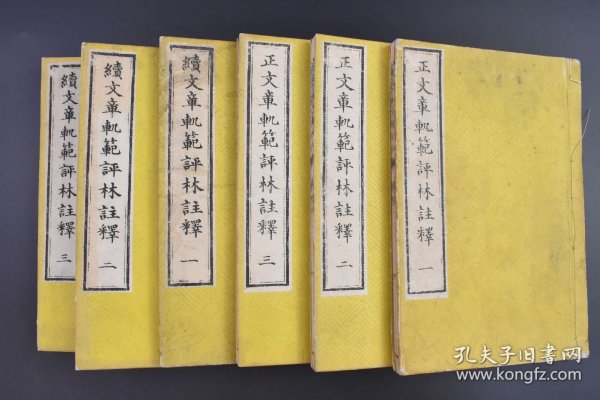 正文章軌範評林註釋 一
正文章軌範評林註釋 二
正文章軌範評林註釋 三
續文章軌範評林註釋 一
續文章軌範評林註釋 二
續文章軌範評林註釋 三
孔夫子旧书网
www.kongfz.com